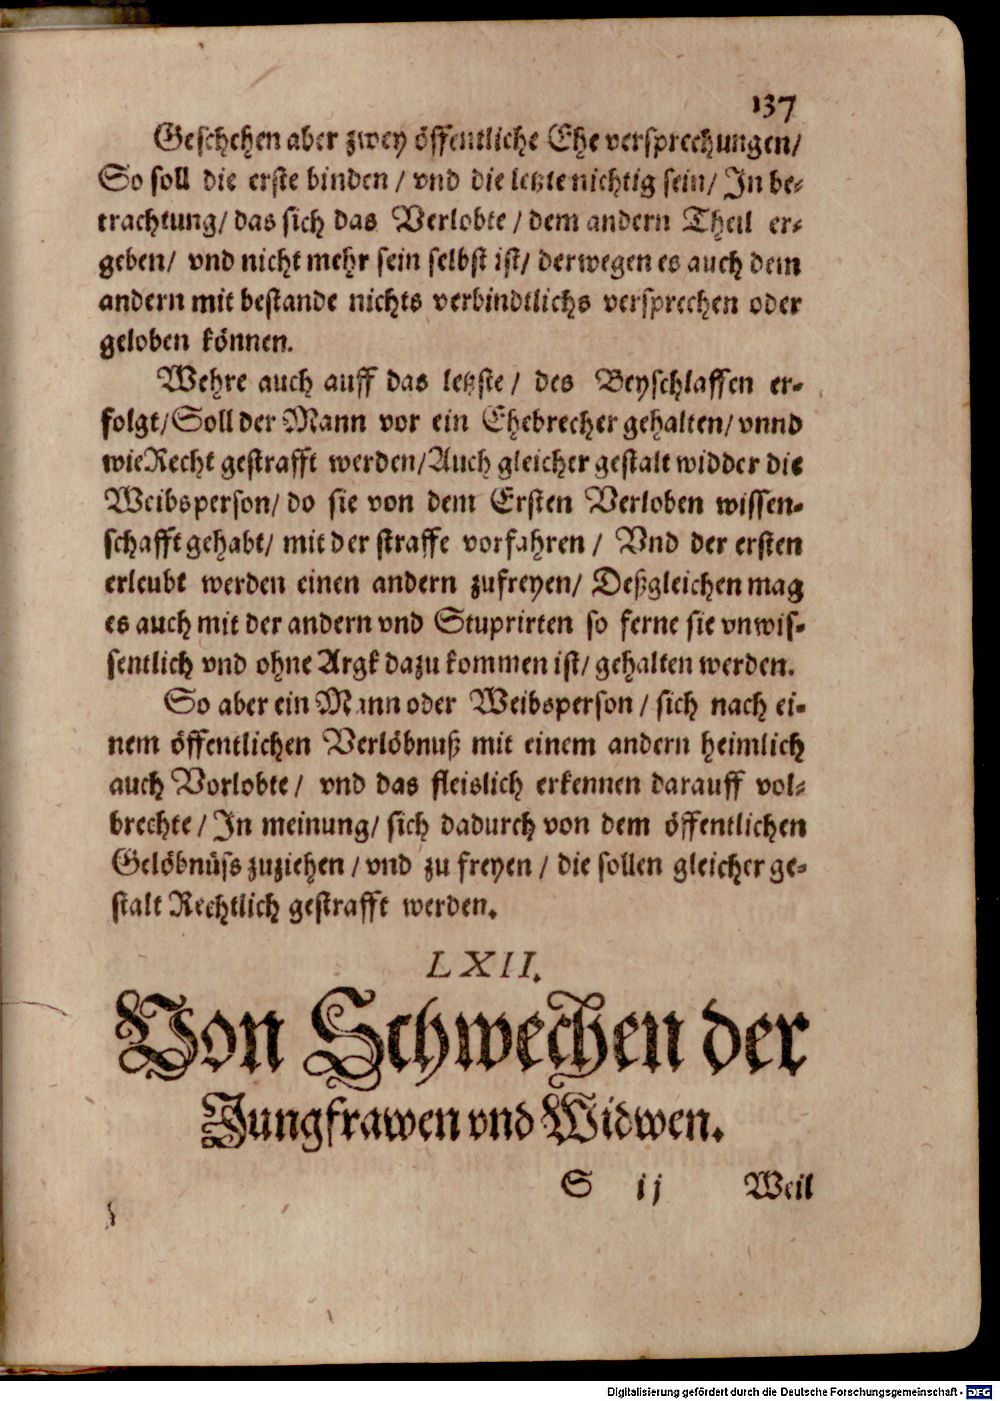 137
Geschehen aber zwey öffentliche Ehe versprechungen/
So soll die erste binden / vnd die letzte nichtig sein/ In be-
trachtung/ das sich das Verlobte / dem andern Theil er-
geben/ vnd nicht mehr sein selbst ist/ derwegen es auch dem
andern mit bestande nichts verbindtlichs versprechen oder
geloben können.
Wehre auch auff das letzste / des Beyschlaffen er-
folgt/ Soll der Mann vor ein Ehebrecher gehalten/ vnnd
wie Recht gestrafft werden/ Auch gleicher gestalt widder die
Weibsperson/ do sie von dem Ersten Verloben wissen-
schafft gehabt/ mit der straffe vorfahren / Vnd der ersten
erleubt werden einen andern zufreyen/ Deßgleichen mag
es auch mit der andern vnd Stuprirten so ferne sie vnwis-
sentlich vnd ohne Argk dazu kommen ist/ gehalten werden.
So aber ein Mann oder Weibsperson / sich nach ei-
nem öffentlichen Verlöbnuß mit einem andern heimlich
auch Vorlobte / vnd das fleislich erkennen darauff vol-
brechte / In meinung/ sich dadurch von dem öffentlichen
Gelöbnüss zuziehen / vnd zu freyen / die sollen gleicher ge-
stalt Rechtlich gestrafft werden.
LXII.
Von Schwechen der
Jungfrawen vnd Widwen.
S ij Weil
Digitalisierung gefördert durch die Deutsche Forschungsgemeinschaft - DFG